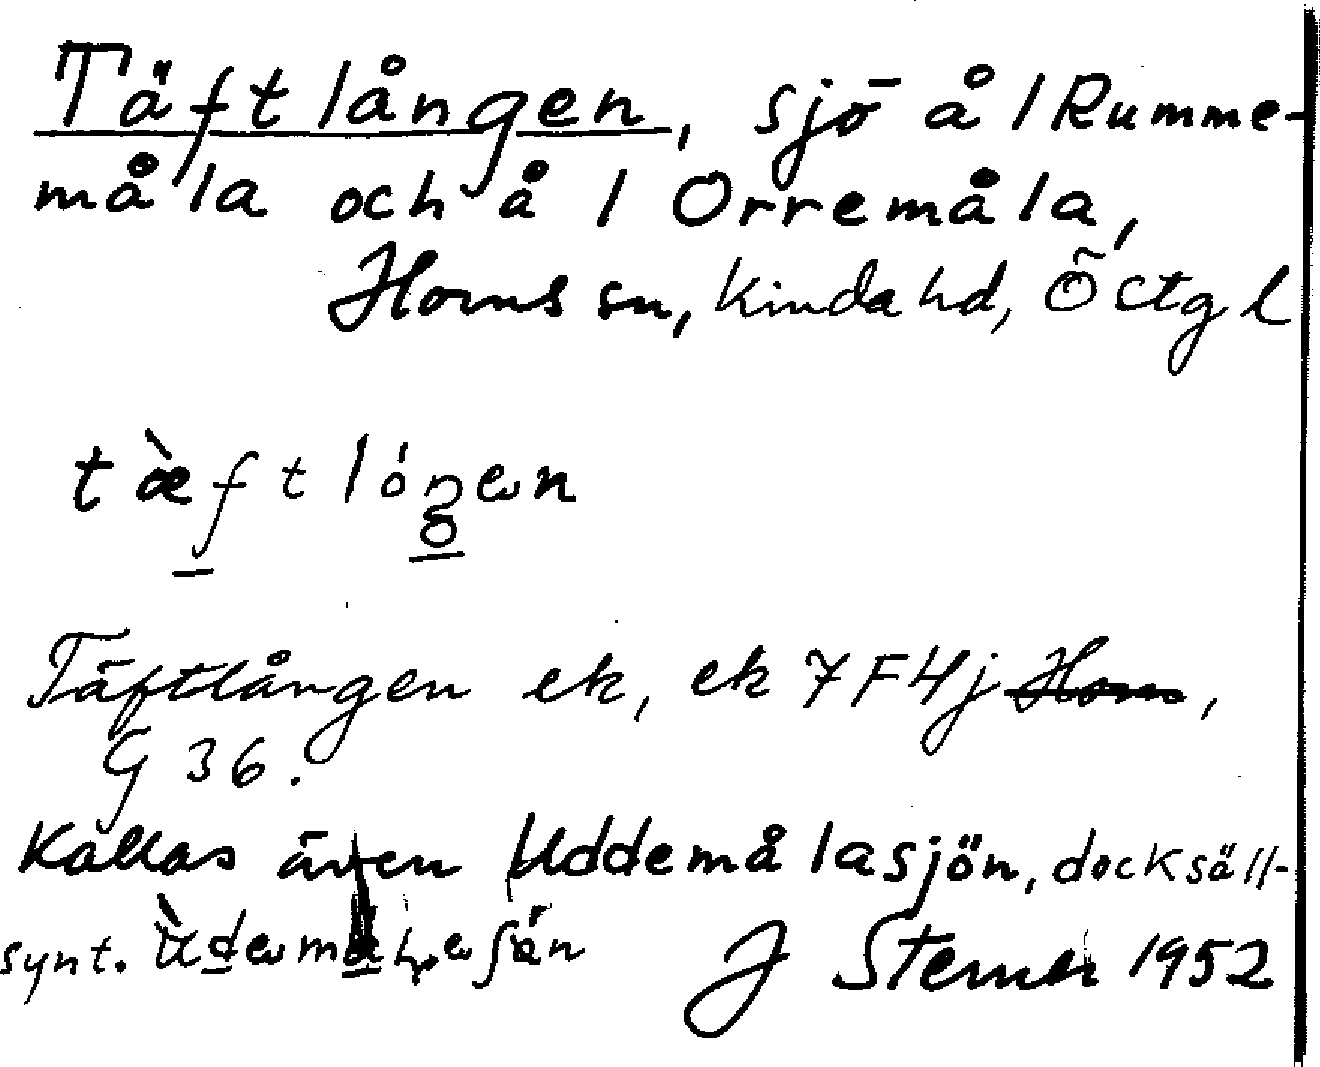 Täftlången, sjö å l Rumme-
måla och å l Orremåla,
Horns sn, Kinda hd, Östgl
Täftlången ek, ek 7F4j Horns,
G 36.
Kallas även Uddemålasjön, dock säll-
synt. J Sterner 1952